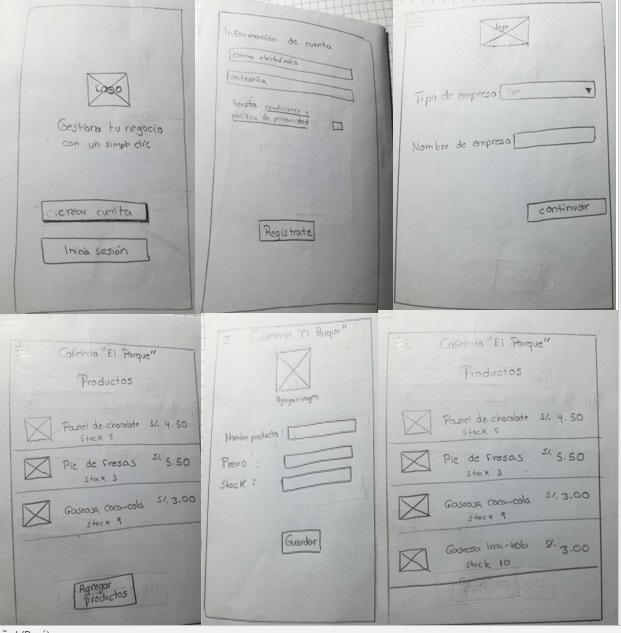 LOGO
Gestiona tu negocio
con un simple clic
crear cuenta
Inicia sesión
Información de cuenta
correo electrónico
contraseña
Acepta condiciones y
política de privacidad
Registrate
logo
Tipo de empresa
Tipo
Nombre de empresa
continuar
Cafetería "El Parque"
Productos
Pastel de chocolate S/. 4.50
Stock 5
Pie de fresas S/. 5.50
stock 3
Gaseosa coca-cola S/. 3.00
stock 9
Agregar
productos
Cafetería "El Parque"
Agregar imagen
Nombre producto:
Precio :
Stock :
Guardar
Cafetería "El Parque"
Productos
Pastel de chocolate S/. 4.50
Stock 5
Pie de fresas S/. 5.50
stock 3
Gaseosa coca-cola S/. 3.00
stock 9
Gaseosa Inca-kola S/. 3.00
stock 10